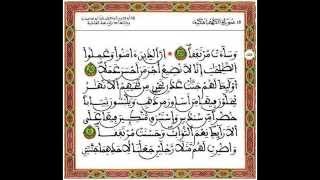 سورة الكهف مكية
وَسَآءَتْ مُرْتَفَقاً إِنَّ ٱلذِينَ ءَامَنُواْ وَعَمِلُواْ
ٱلصَّٰلِحَٰتِ إِنَّا لَا نُضِيعُ أَجْرَ مَنْ أَحْسَنَ عَمَلًا
أُوْلَٰٓئِكَ لَهُمْ جَنَّٰتُ عَدْنٍ تَجْرِے مِن تَحْتِهِمُ ٱلْأَنْهَٰرُ
يُحَلَّوْنَ فِيهَا مِنْ أَسَاوِرَ مِن ذَهَبٍ وَيَلْبَسُونَ ثِيَاباً
خُضْراً مِّن سُندُسٍ وَإِسْتَبْرَقٍ مُّتَّكِـِٕينَ فِيهَا عَلَى
ٱلْأَرَآئِكِ نِعْمَ ٱلثَّوَابُ وَحَسُنَتْ مُرْتَفَقاً
وَاضْرِبْ لَهُم مَّثَلًا رَّجُلَيْنِ جَعَلْنَا لِأَحَدِهِمَا جَنَّتَيْنِ